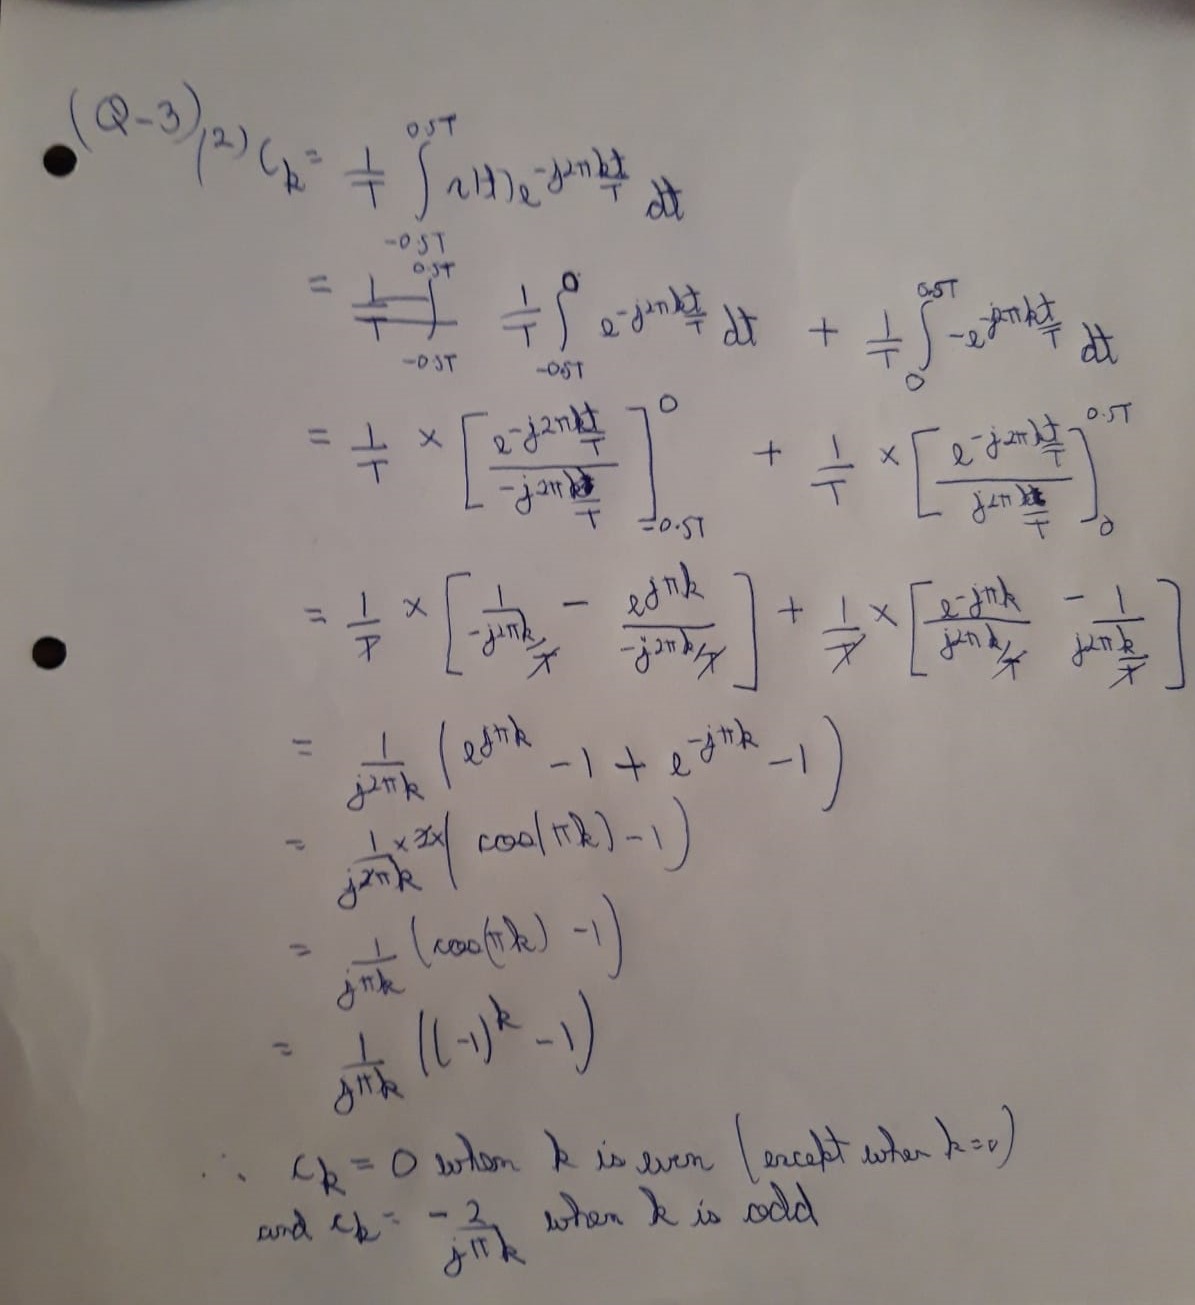 (Q-3)(2) C_k = 1/T ∫_{-0.5T}^{0.5T} x(t) e^{-j2πkt/T} dt
= 1/T ∫_{-0.5T}^{0.5T} 1/T ∫_{-0.5T}^{0} e^{-j2πkt/T} dt + 1/T ∫_{0}^{0.5T} -e^{-j2πkt/T} dt
= 1/T × [e^{-j2πkt/T} / (-j2πk/T)]_{-0.5T}^{0} + 1/T × [e^{-j2πkt/T} / (j2πk/T)]_{0}^{0.5T}
= 1/T × [1/(-j2πk/T) - e^{jπk}/(-j2πk/T)] + 1/T × [e^{-jπk}/(j2πk/T) - 1/(j2πk/T)]
= 1/(j2πk) (e^{jπk} - 1 + e^{-jπk} - 1)
= 1/(j2πk) × 2 × (cos(πk) - 1)
= 1/(jπk) (cos(πk) - 1)
= 1/(jπk) ((-1)^k - 1)
∴ c_k = 0 when k is even (except when k=0)
and c_k = -2/(jπk) when k is odd